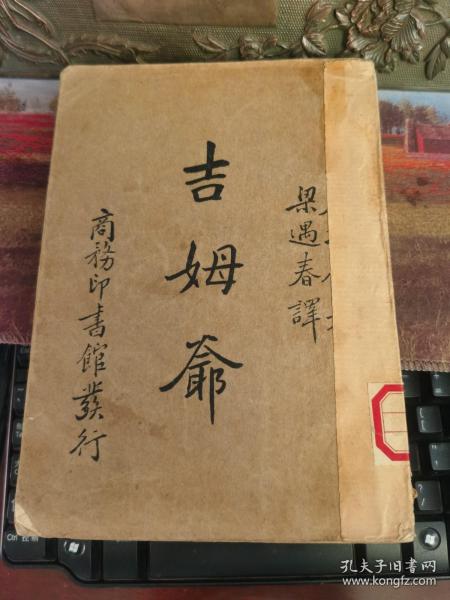 梁遇春譯
吉姆爺
商務印書館發行
孔夫子旧书网
www.kongfz.com